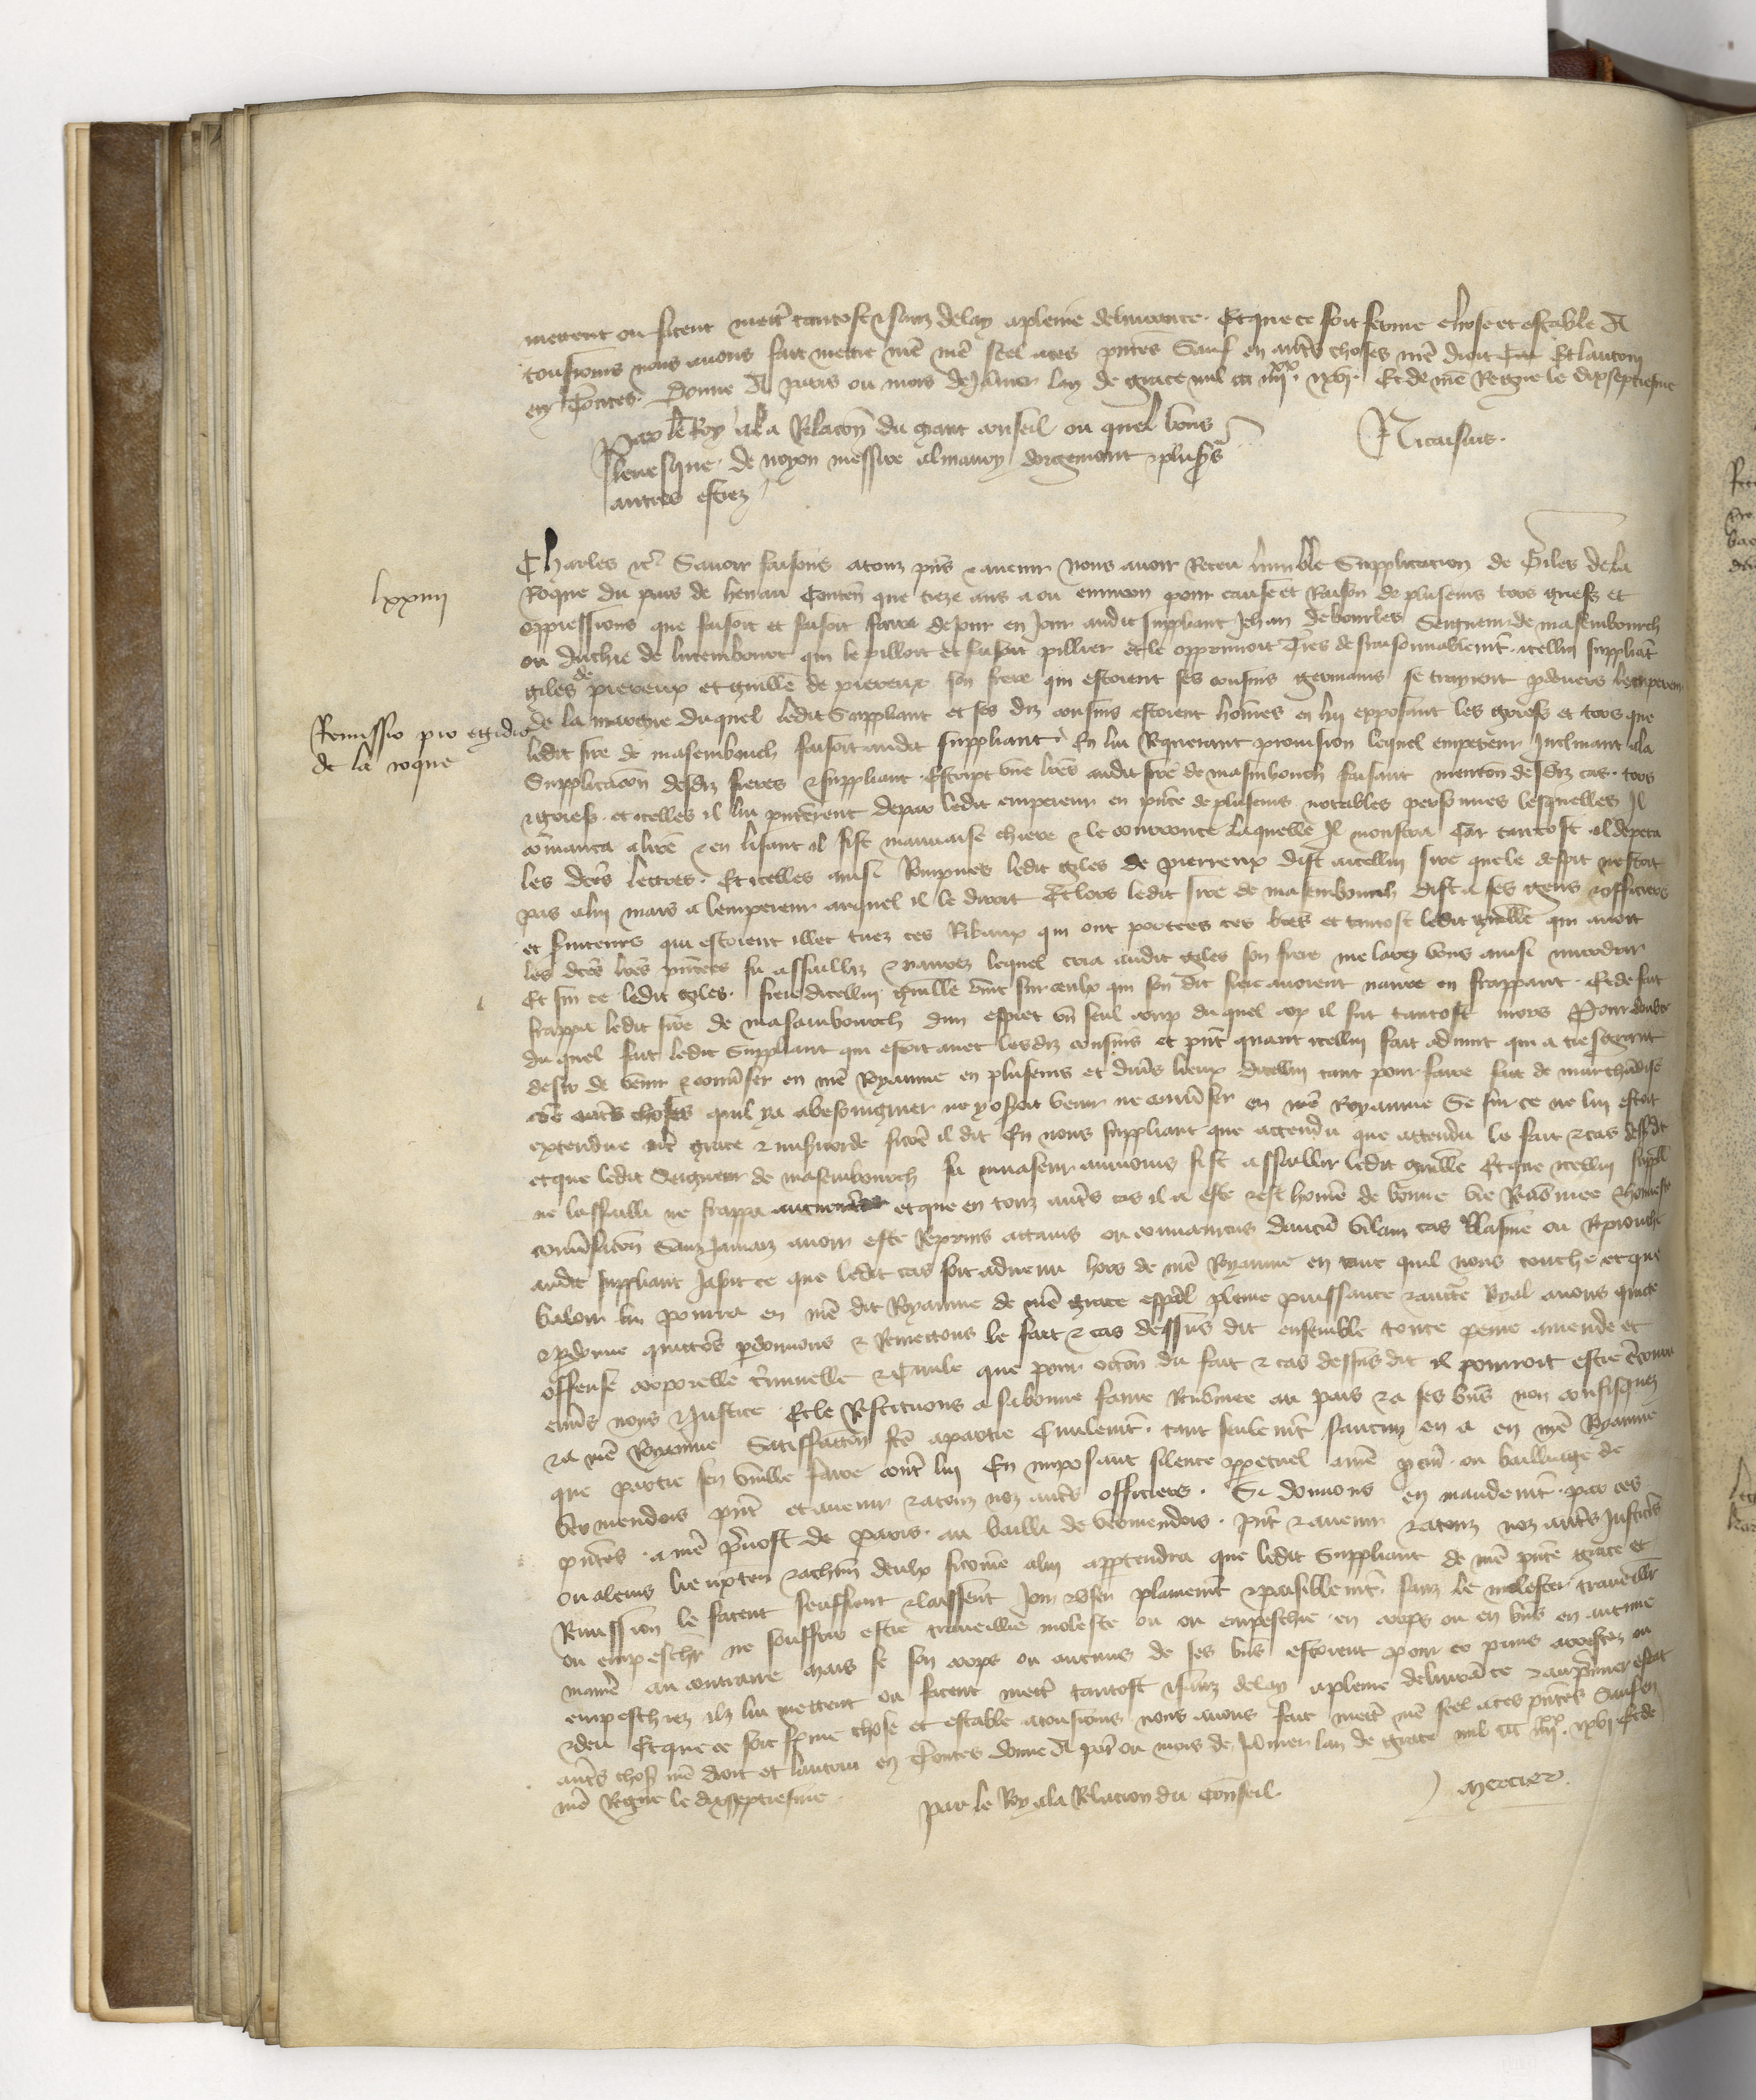 mettent ou facent mettre tantost et sanz delay a pleine delivrance. Et que ce soit ferme chose et estable A
tousiours nous avons fait mettre nre scel a ces pntes Sauf en autres choses nre droit Et lautruy
en toutes. Donne A paris ou mois de Janvier lan de grace mil ccc iiiixx. xvj. Et de nre Regne le dixseptiesme
Par le Roy a la Relacon du grant conseil ou quel vous
levesque de noyon messire almaury dorgemont et plusrs
autres estiez
Nicasius.
lxxiiii
Charles etc. Savoir faisons a touz pns et avenir Nous avoir Receu humble Supplicacion de Giles de la
Roque du pais de henau Conten que treze ans a ou environ pour cause et Raison de plusieurs tors griefs et
oppressions que faisoit et faisoit faire de Jour en Jour audit suppliant Jehan de bourles Seigneur de masembourch
ou duchie de lucembourc qui le pilloit et faisoit pillier et le opprimoit Tres desraisonnablement. icellui suppliant
giles de piereux et guille de piereux son frere qui estoient ses cousins germains se trayrent pardevers lempereur
Remissio pro egidio
de la roque
de la marche duquel ledit Suppliant et ses diz cousins estoient homes en lui exposant les griefs et tors que
ledit sire de masembouch faisoit audit suppliant. En lui Requerant provision lequel empereur Inclinant a la
Supplicacion desdiz freres et suppliant. Escript unes lres audit sire de masembouch faisant mencion desdiz cas. tors
et griefs. et icelles il lui pnterent depar ledit empereur en pnce de plusieurs notables personnes lesquelles Il
comanca a lire et en lisant il fist mauvaise chiere et le couroucie laquelle Il monstra Car tantost il depeca
les dces lectres. Et icelles ainsi Rompues ledit giles de pierreux dist a icellui sire que le despit nestoit
pas a lui mais a lempereur auquel il le diroit Et lors ledit sire de masembouch dist a ses gens et officiers
et serviteurs qui estoient illec tuez ces Ribaux qui ont portees ces lres et tantost ledit guille qui avoit
les dces lres pntees fu assailliz et navrez lequel cria audit giles son frere me larez vous ainsi murdrir
Et sur ce ledit giles. frere dicellui guille vint sur ceulx qui son dit frere avoient navre en frappant. Et de fait
frappa ledit sire de masambourch dun espiet un seul coup duquel cop il fut tantost mors Pour doubte
du quel fait ledit Suppliant qui estoit avec lesdiz cousins et pnt quant icellui fait advint qui a tresgrant
desir de venir et converser en nre Royaume en plusieurs et divers lieux dicellui tant pour faire fait de marchandise
cõe autres choses quil y a a besoingnier ne y oseroit venir ne converser en nre Royaume Se sur ce ne lui estoit
extendue nre grace et misericorde sicõe il dit En nous suppliant que attendu que attendu le fait et cas dessusdit
et que ledit Seigneur de masembourch fu invaseur aincoiz fist assaillir ledit guille Et que icellui suppl
ne lassailli ne frappa et que en touz autres cas il a este et est home de bonne vie Renomee et honneste
conversacion Sanz Jamaiz avoir este Reprins attains ou convaincus daucun vilain cas blasme ou Reprouche
audit suppliant Jasoit ce que ledit cas soit advenu hors de nre Royaume en tant quil nous touche et que
valoir lui pourra en nre dit Royaume de nre grace espal pleine puissance et aucte Royal avons quicte
et pardonne quittons pardonnons et Remettons le fait et cas dessus dit ensemble toute peine amende et
offense corporelle criminelle et Civile que pour occon du fait et cas dessus dit il pourroit estre encouru
envers nous et Justice. Et le Restituons a sa bonne fame Renomee au pais et a ses biens non confisquez
et a nre Royaume Satisfaccion fce a partie Civilemt. tant seulemt saucun en a en nre Royaume
que partie sen vueille faire contre lui En imposant silence perpetuel a nre procur. ou bailliage de
vermendois pnt et avenir et a touz noz autres officiers. Si donnons en mandemt. par ces
pntes. a nre prevost de paris. au bailli de vermendois. pnt et avenir et a touz noz autres Justiciers
ou a leurs lieuxten et a chascun deulx sicome a lui appartendra que ledit Suppliant de nre pnte grace et
Remission le facent seuffrent et laissent Joir et user plainemt et paisiblemt. sanz le molester traveillier
ou empeschier ne souffrir estre traveillie moleste ou ou empeschie en corps ou en biens en aucune
maniere au contraire Mais se son corps ou aucuns de ses biens estoient pour ce prins arrestez ou
empeschiez ilz lui mettent ou facent mettre tantost et sanz delay a pleine delivrance et au premier estat
et deu Et que ce soit ferme chose et estable a tousiours nous avons fait mettre nre scel a ces pntes Sauf en
autres choses nre droit et lautrui en toutes donne A paris ou mois de Janvier lan de grace mil ccc iiiixx. xvj Et de
nre Regne le dixseptiesme.
Par le Roy a la Relacion du Conseil.
Mercier.